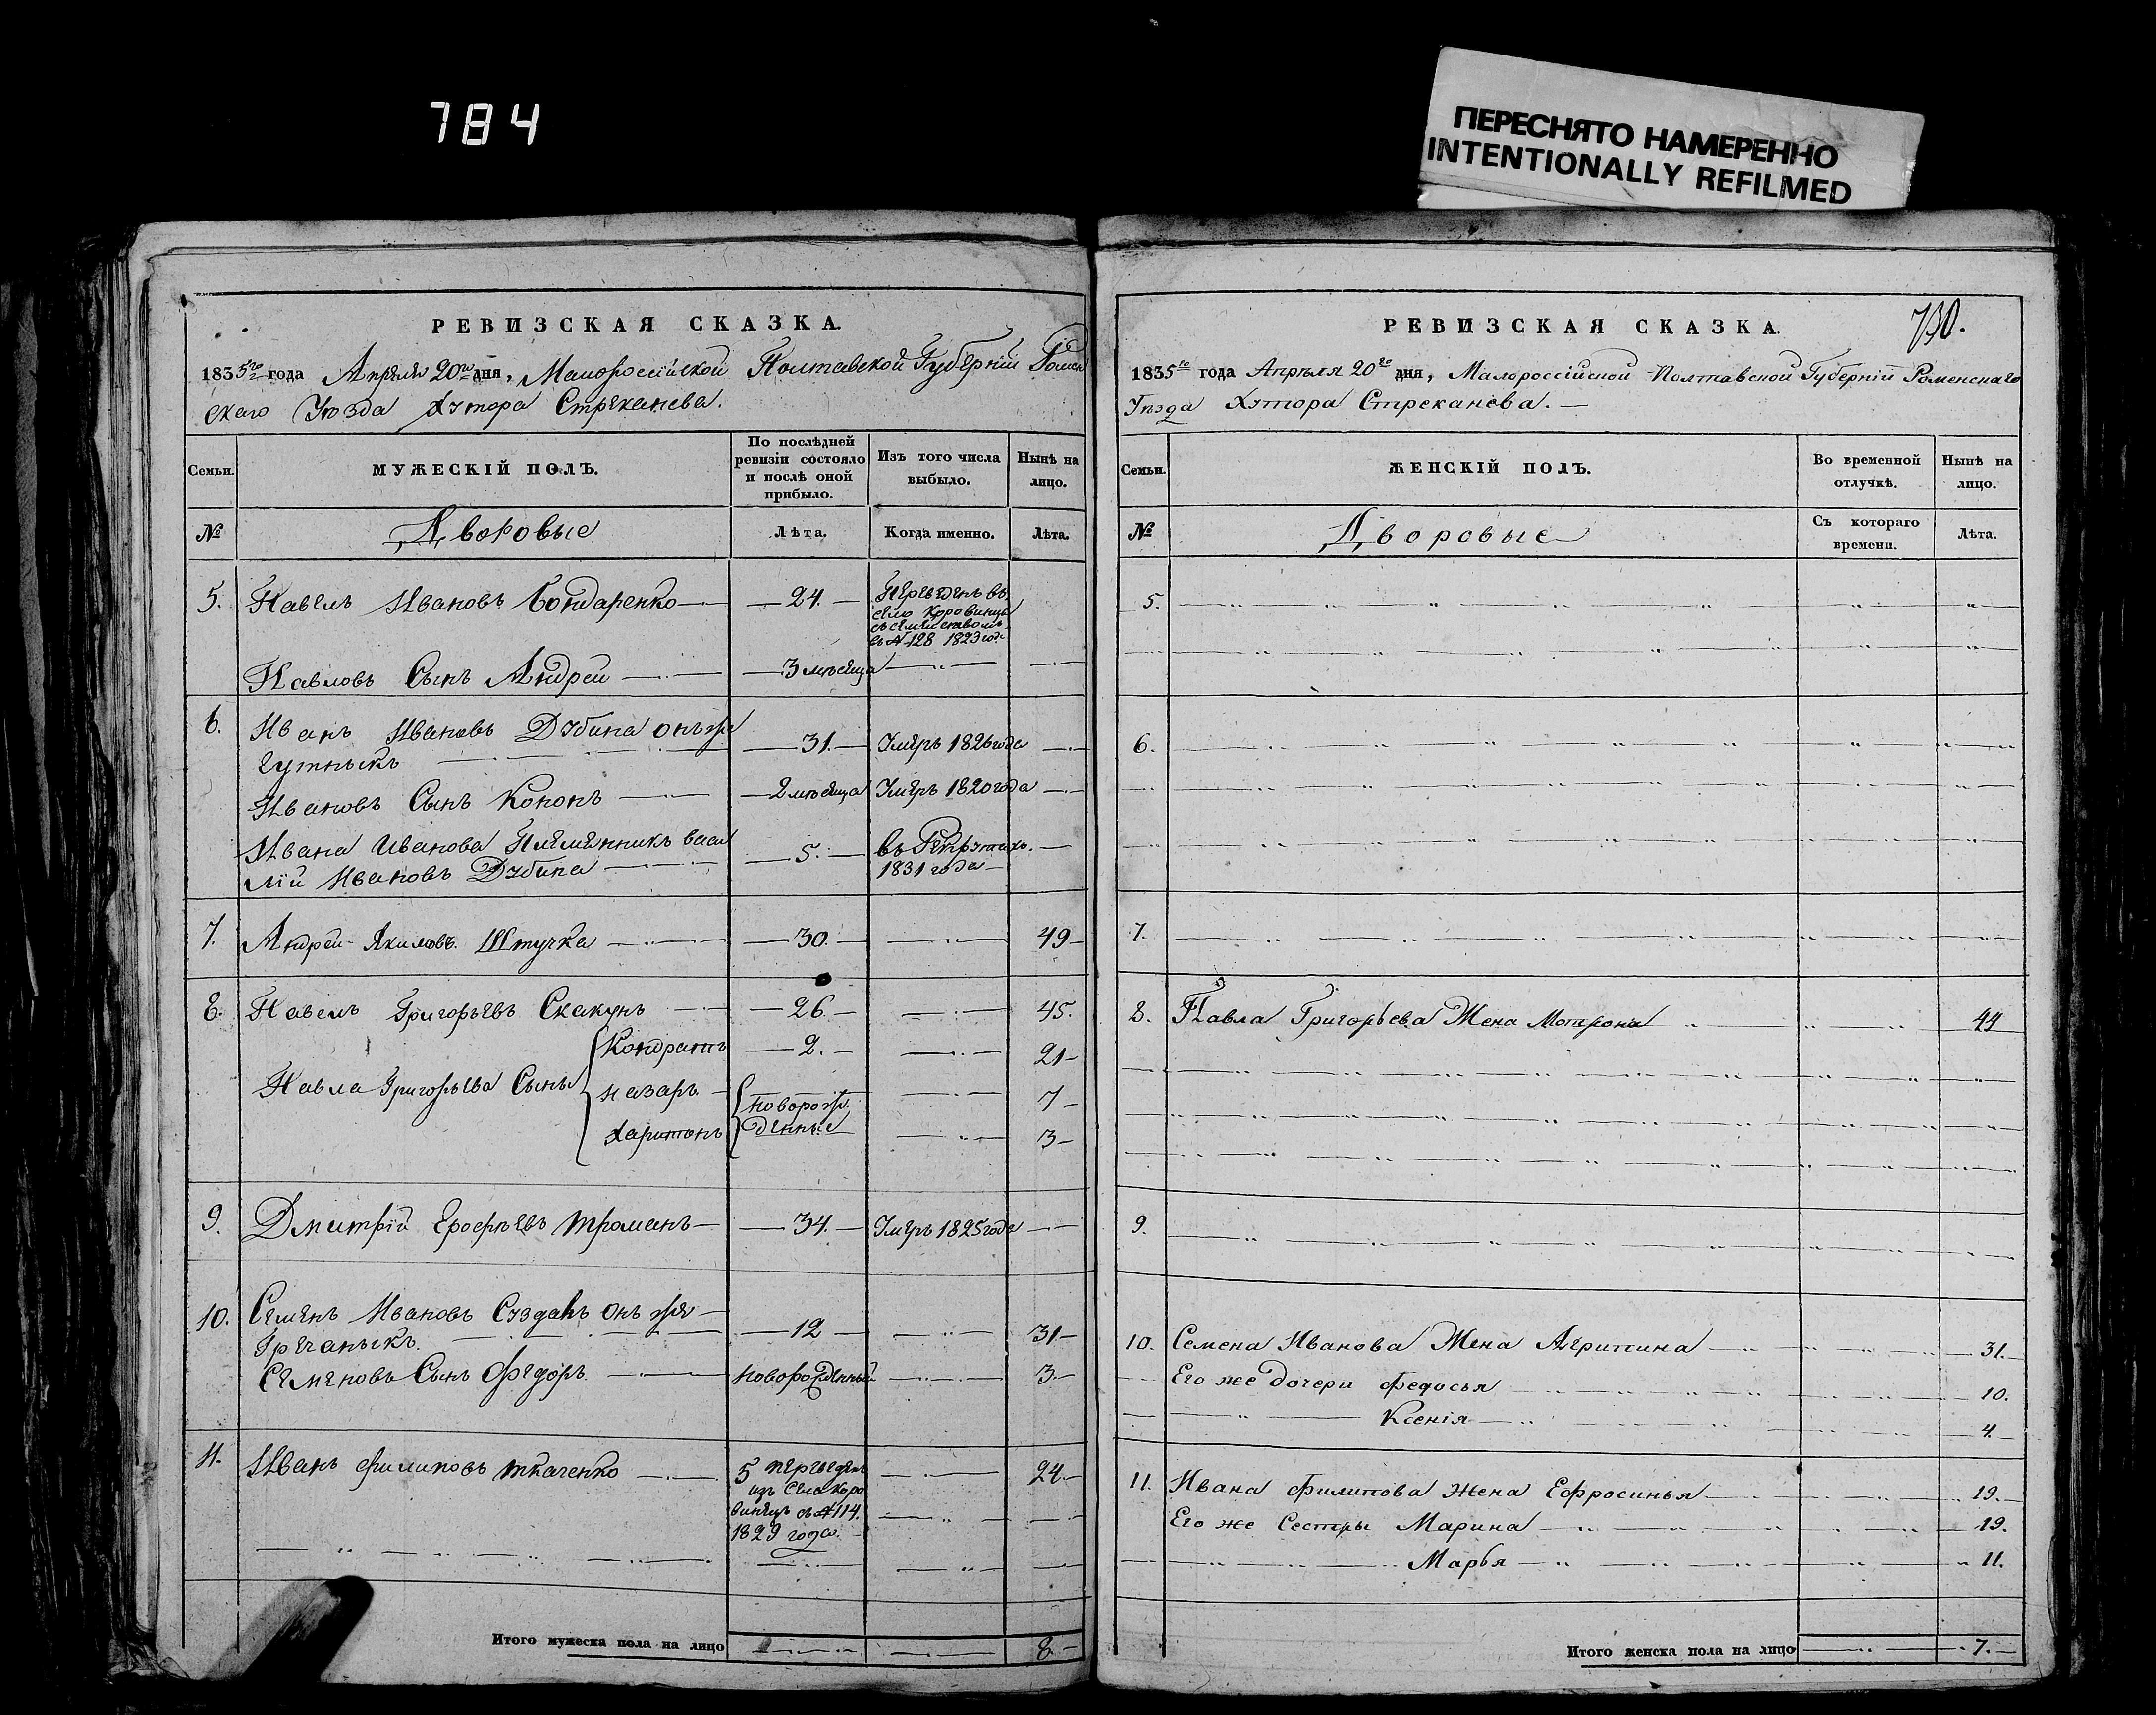 784
ПЕРЕСНЯТО НАМЕРЕННО
INTENTIONALLY REFILMED
РЕВИЗСКАЯ СКАЗКА.
1835го года Апреля 20го дня, Малороссійской Полтавской Губерніи Ромен
скаго Уезда Хутора Стреканева.
Семьи.
МУЖЕСКІЙ ПОЛЪ.
По послѣдней ревизіи состояло и послѣ оной прибыло.
Изъ того числа выбыло.
Нынѣ на лицо.
№
Дворовые
Лѣта.
Когда именно.
Лѣта.
5. Павелъ Ивановъ Бондаренко 24. Переведенъ въ
село Коровинцы
съ семействомъ
въ № 128 1823 год
Павловъ Сынъ Андрей 3 месяца
6. Иванъ Ивановъ Дубина онъ же
Гутныкъ 31. Умеръ 1826 года
Ивановъ Сынъ Кононъ 2 месяца Умеръ 1820 года
Ивана Иванова Племянникъ Васи
лій Ивановъ Дубина 5. въ Рекрутахъ
1831 года
7. Андрей Якимовъ Штучка 30. 49
8. Павелъ Григорьевъ Скакунъ 26. 45.
Кондратъ 2. 21
Павла Григорьева Сыны Назаръ 7
Новорож
денные
Харитонъ 3
9. Дмитрій Ерофѣевъ Троманъ 34. Умеръ 1825 года
10. Семенъ Ивановъ Суздакъ онъ же
Гречаныкъ. 12 31
Семеновъ Сынъ Федоръ новорожденный 3.
11. Иванъ Филиповъ Ткаченко 5 переведенъ 24.
изъ села Коро
винецъ съ № 114.
1829 года.
Итого мужеска пола на лицо 8
РЕВИЗСКАЯ СКАЗКА.
730.
1835го года Апрѣля 20го дня, Малороссійской Полтавской Губерніи Роменскаго
Уѣзда Хутора Стреканева.
Семьи.
ЖЕНСКІЙ ПОЛЪ.
Во временной отлучкѣ.
Нынѣ на лицо.
№
Дворовые
Съ котораго времени.
Лѣта.
5.
6.
7.
8. Павла Григорьева Жена Мотрона 44
9.
10. Семена Иванова Жена Агрипина 31.
Его же Дочери Федосья 10.
Ксенія 4.
11. Ивана Филипова Жена Ефросинья 19.
Его же Сестры Марина 19.
Марья 11.
Итого женска пола на лицо 7.